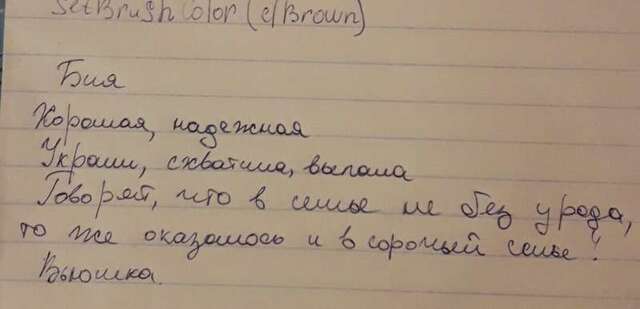 SetBrushColor(clBrown)
Бия
Хорошая, надежная
Украли, схватила, выпала
Говорят, что в семье не без урода,
то же оказалось и в сорочьей семье!
Вьюшка.